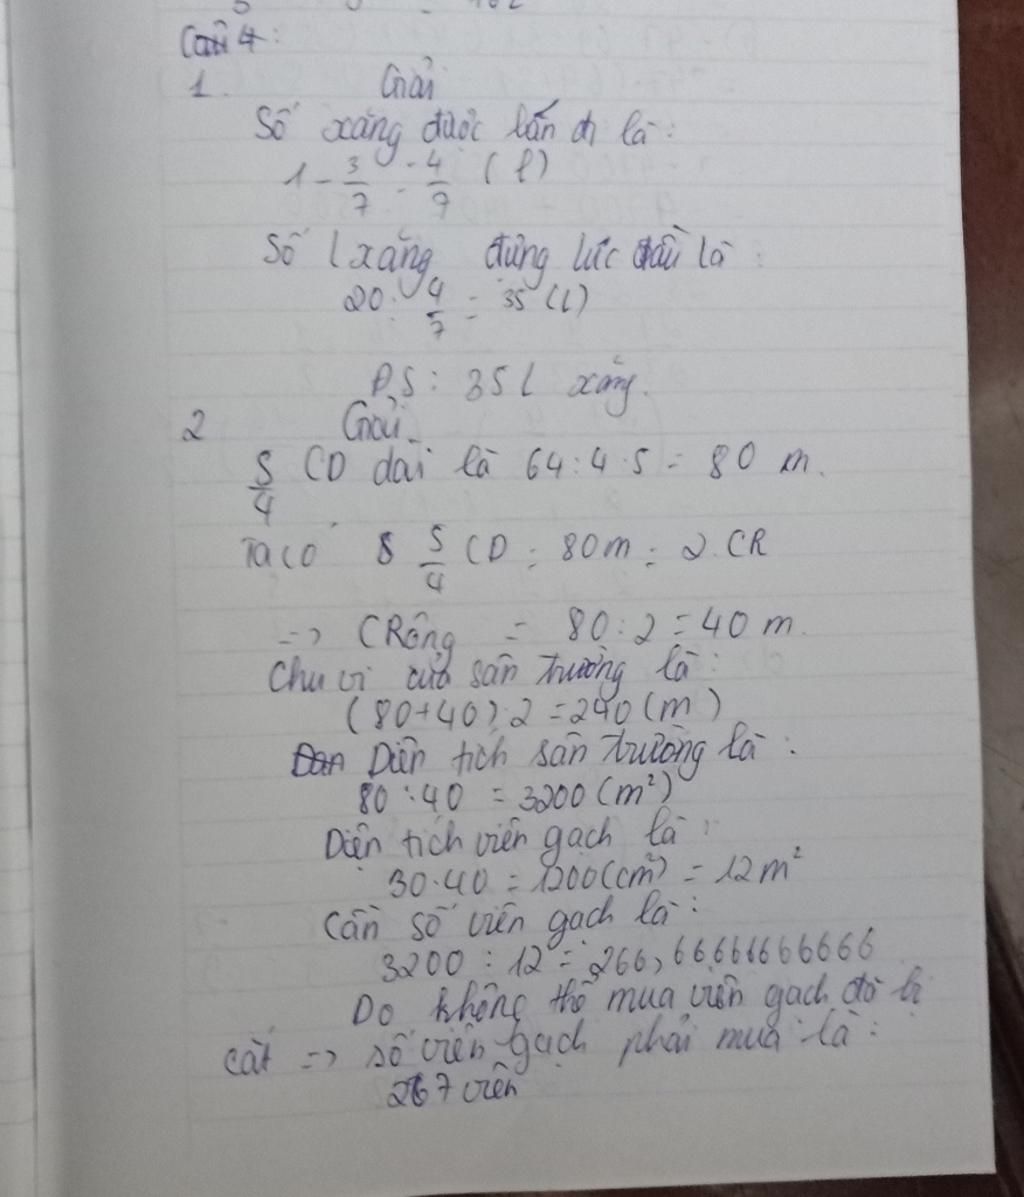 Câu 4:
1. Giải
Số xăng được lấn đi là:
1 - 3/7 = 4/7 (l)
Số l xăng đựng lúc đầu là:
20 : 4/7 = 35 (l)
ĐS: 35 l xăng.
2 Giải
5/4 CD dai là 64 : 4 . 5 = 80 m.
Ta có 5/4 CD = 80m = 2. CR
=> CRộng = 80 : 2 = 40 m.
Chu vi của sân trường là:
(80+40).2 = 240 (m)
Diện tích sân trường là:
80 . 40 = 3200 (m²)
Diện tích viên gạch là:
30.40 = 1200 (cm²) = 12 m²
Cần số viên gạch là:
3200 : 12 = 266,66666666666
Do không thể mua viên gạch đó bị
cắt => số viên gạch phải mua là:
267 viên